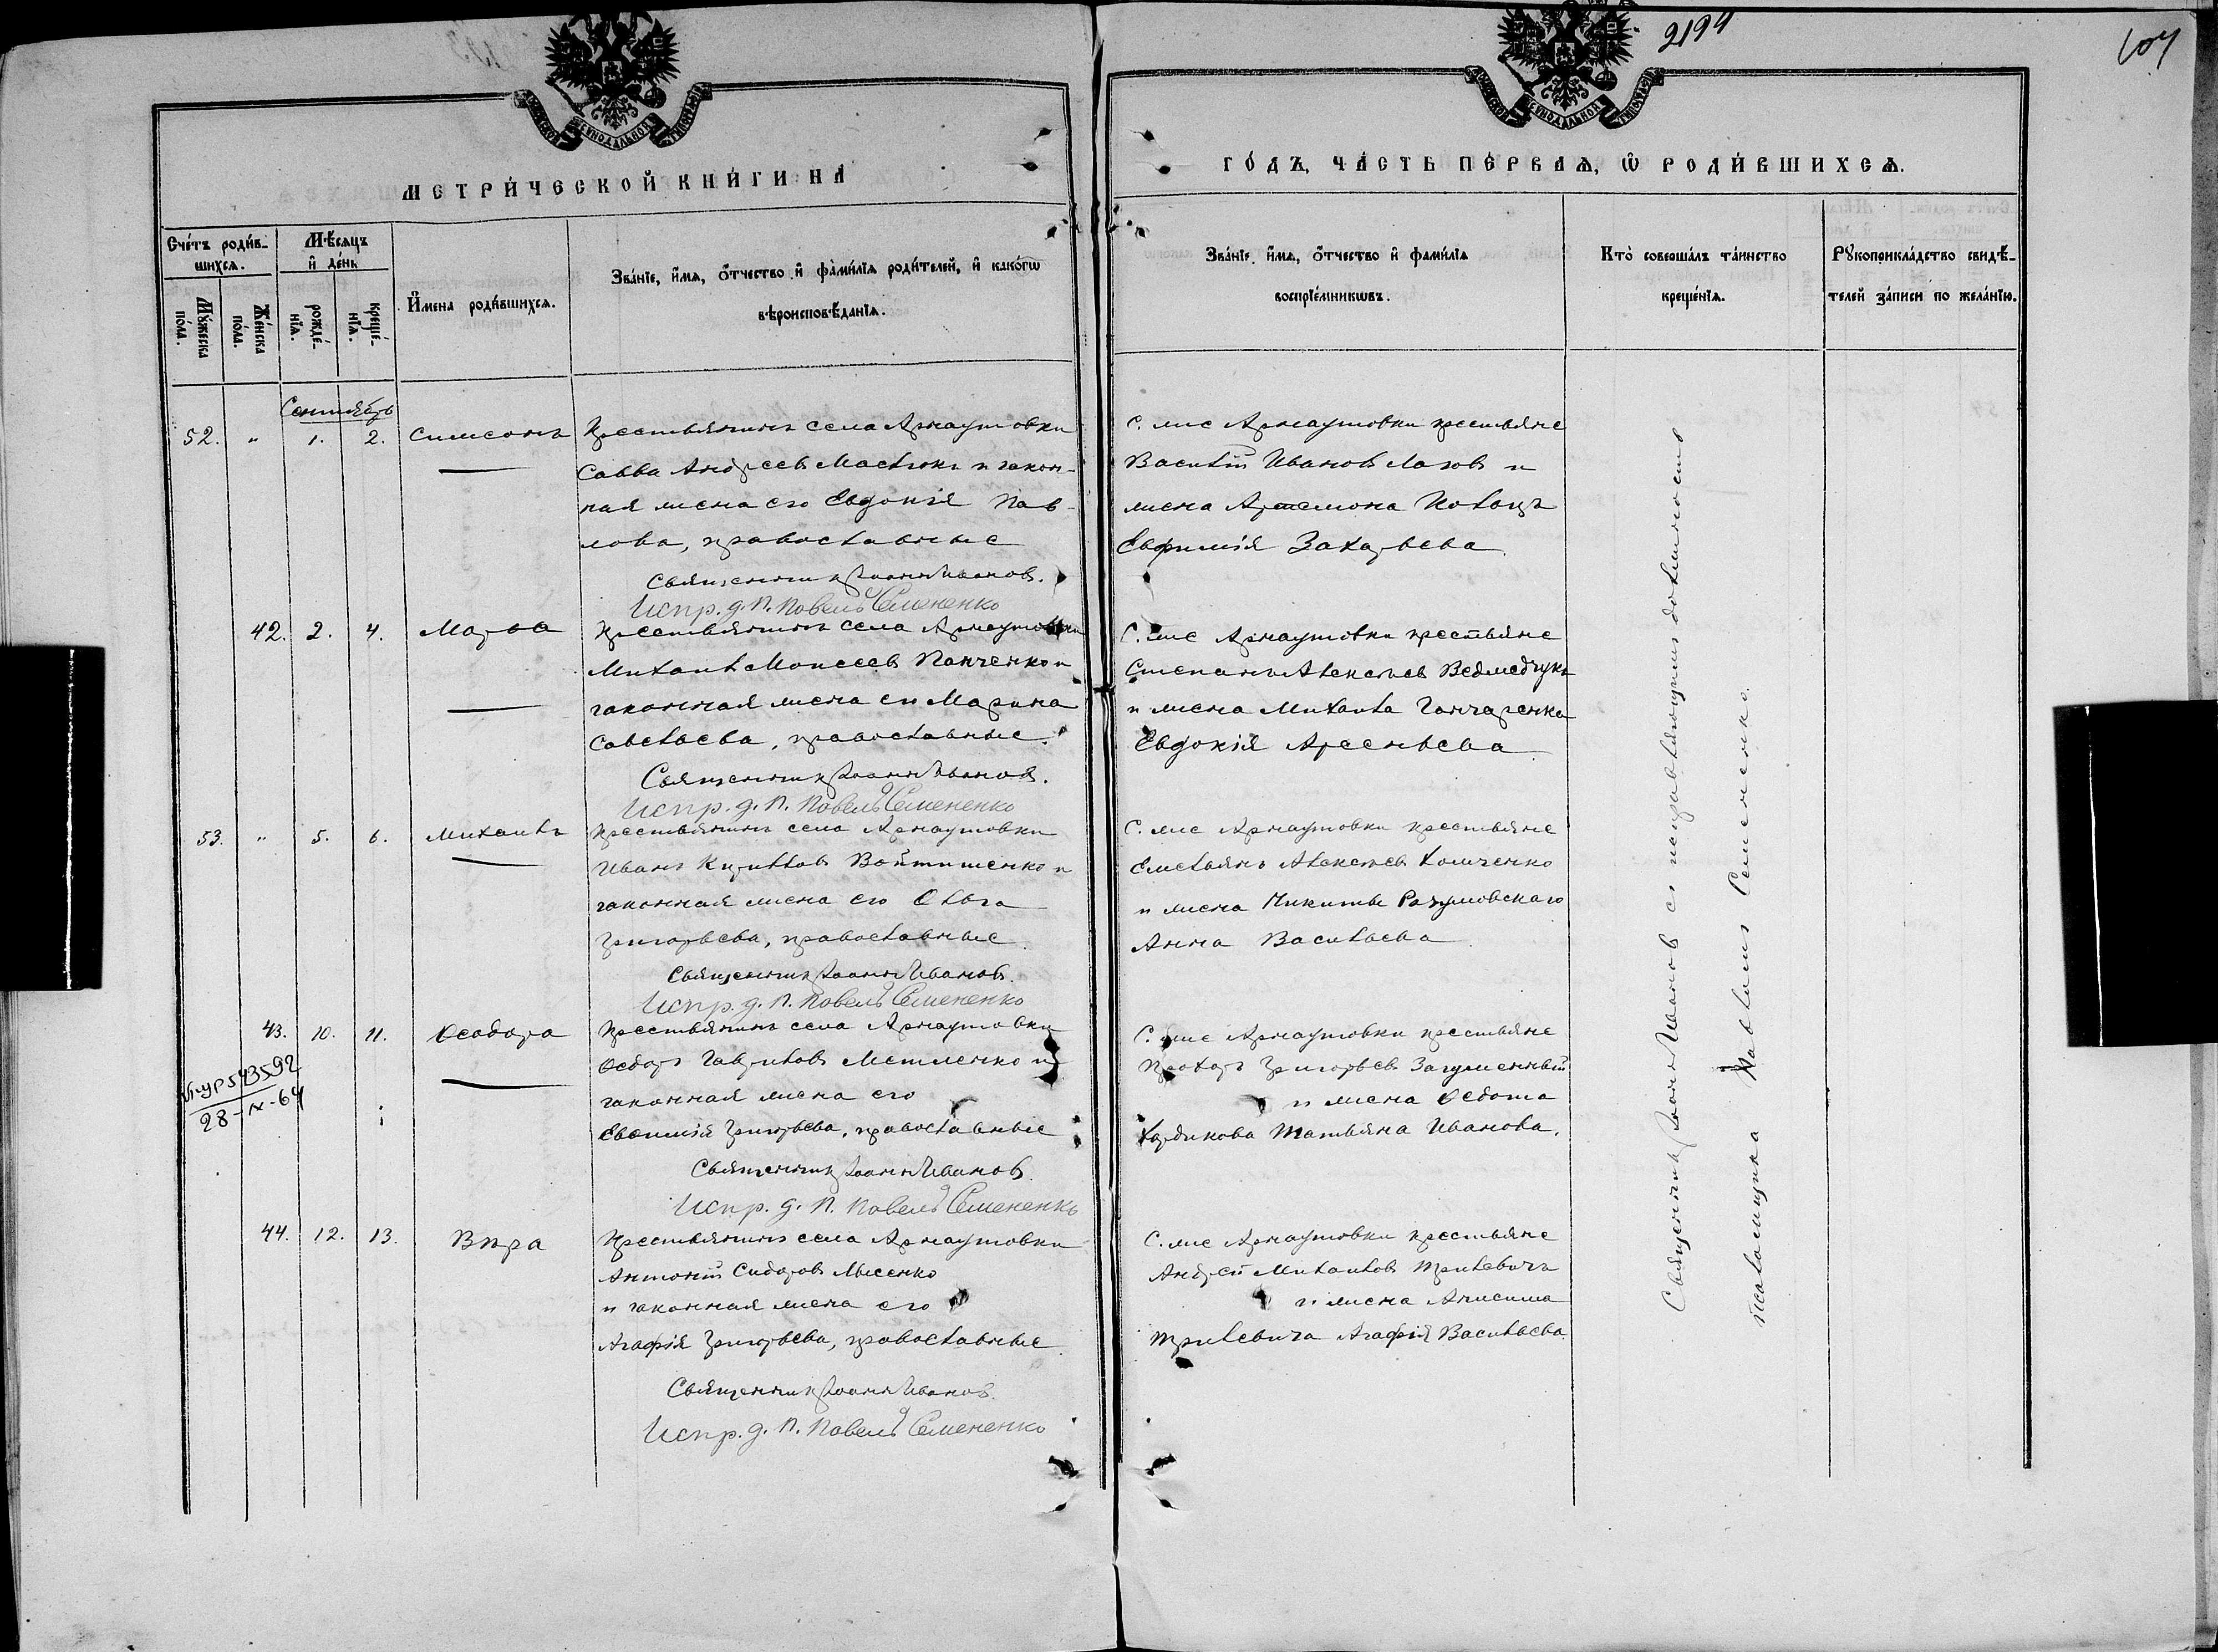 2194
107
МЕТРИ́ЧЕСКОЙ КНИ́ГИ НА
ГО́ДЪ, ЧА́СТЬ ПЕ́РВАѦ, Ѡ РОДИ́ВШИХСѦ.
Сче́тъ роди́в-
шихсѧ.
Мꙋ́жеска по́ла.
Же́нска по́ла.
Мѣ́сѧцъ
и҆ де́нь
рожде́-нїѧ.
креще́-нїѧ.
И҆мена роди́вшихсѧ.
Зва́нїе, и҆́мѧ, ѻ҆́тчество и҆ фами́лїѧ роди́телей, и҆ како́гѡ
вѣроисповѣ́данїѧ.
Зва́нїе, и҆́мѧ, ѻ҆́тчество и҆ фами́лїѧ
воспрїе́мникѡвъ.
Кто̀ соверша́лъ та́инство
креще́нїѧ.
Рꙋкоприкла́дство свидѣ́-
телей за́писи по жела́нїю.
Сентябрь
52. " 1. 2. Симеонъ
Крестьянинъ села Арнаутовки
Савва Андреевъ Маслюкъ и закон-
ная жена его Евдокія Пав-
лова, православные
Священникъ Іоаннъ Ивановъ.
Испр. д. п. Павелъ Семененко
С. же Арнаутовки крестьяне
Василій Ивановъ Лазовъ и
жена Артемона
Евфимія Захарьева
42. 2. 4. Марѳа
Крестьянинъ села Арнаутовки
Михаилъ Моисеевъ Панченко и
законная жена его Марина
Савельева, православные.
Священникъ Іоаннъ Ивановъ.
Испр. д. п. Павелъ Семененко
С. же Арнаутовки крестьяне
Степанъ Алексѣевъ Ведмедчукъ
и жена Михаила Гончаренка
Евдокія Арсеньева
53. " 5. 6. Михаилъ
Крестьянинъ села Арнаутовки
Иванъ Кирилловъ Войтишенко и
законная жена его Ольга
Григорьева, православные.
Священникъ Іоаннъ Ивановъ.
Испр. д. п. Павелъ Семененко
С. же Арнаутовки крестьяне
Емельянъ Алексѣевъ
и жена Никиты Разумовскаго
Анна Васильева
43. 10. 11. Ѳеодора
543592
28-IX-64
Крестьянинъ села Арнаутовки
Ѳедоръ Гавриловъ Метленко и
законная жена его
Евфимія Григорьева, православные
Священникъ Іоаннъ Ивановъ.
Испр. д. п. Павелъ Семененко
С. же Арнаутовки крестьяне
Прохоръ Григорьевъ Загуменный
и жена Ѳедота
Татьяна Иванова.
44. 12. 13. Вѣра
Крестьянинъ села Арнаутовки
Антоній Сидоровъ Лысенко
и законная жена его
Агафія Григорьева, православные
Священникъ Іоаннъ Ивановъ.
Испр. д. п. Павелъ Семененко
С. же Арнаутовки крестьяне
Андрей Михаиловъ Трилевичъ
и жена Анисима
Трилевича Агафія Васильева
Священникъ Іоаннъ Ивановъ съ исправляющимъ должность
псаломщика Павломъ Семененко.